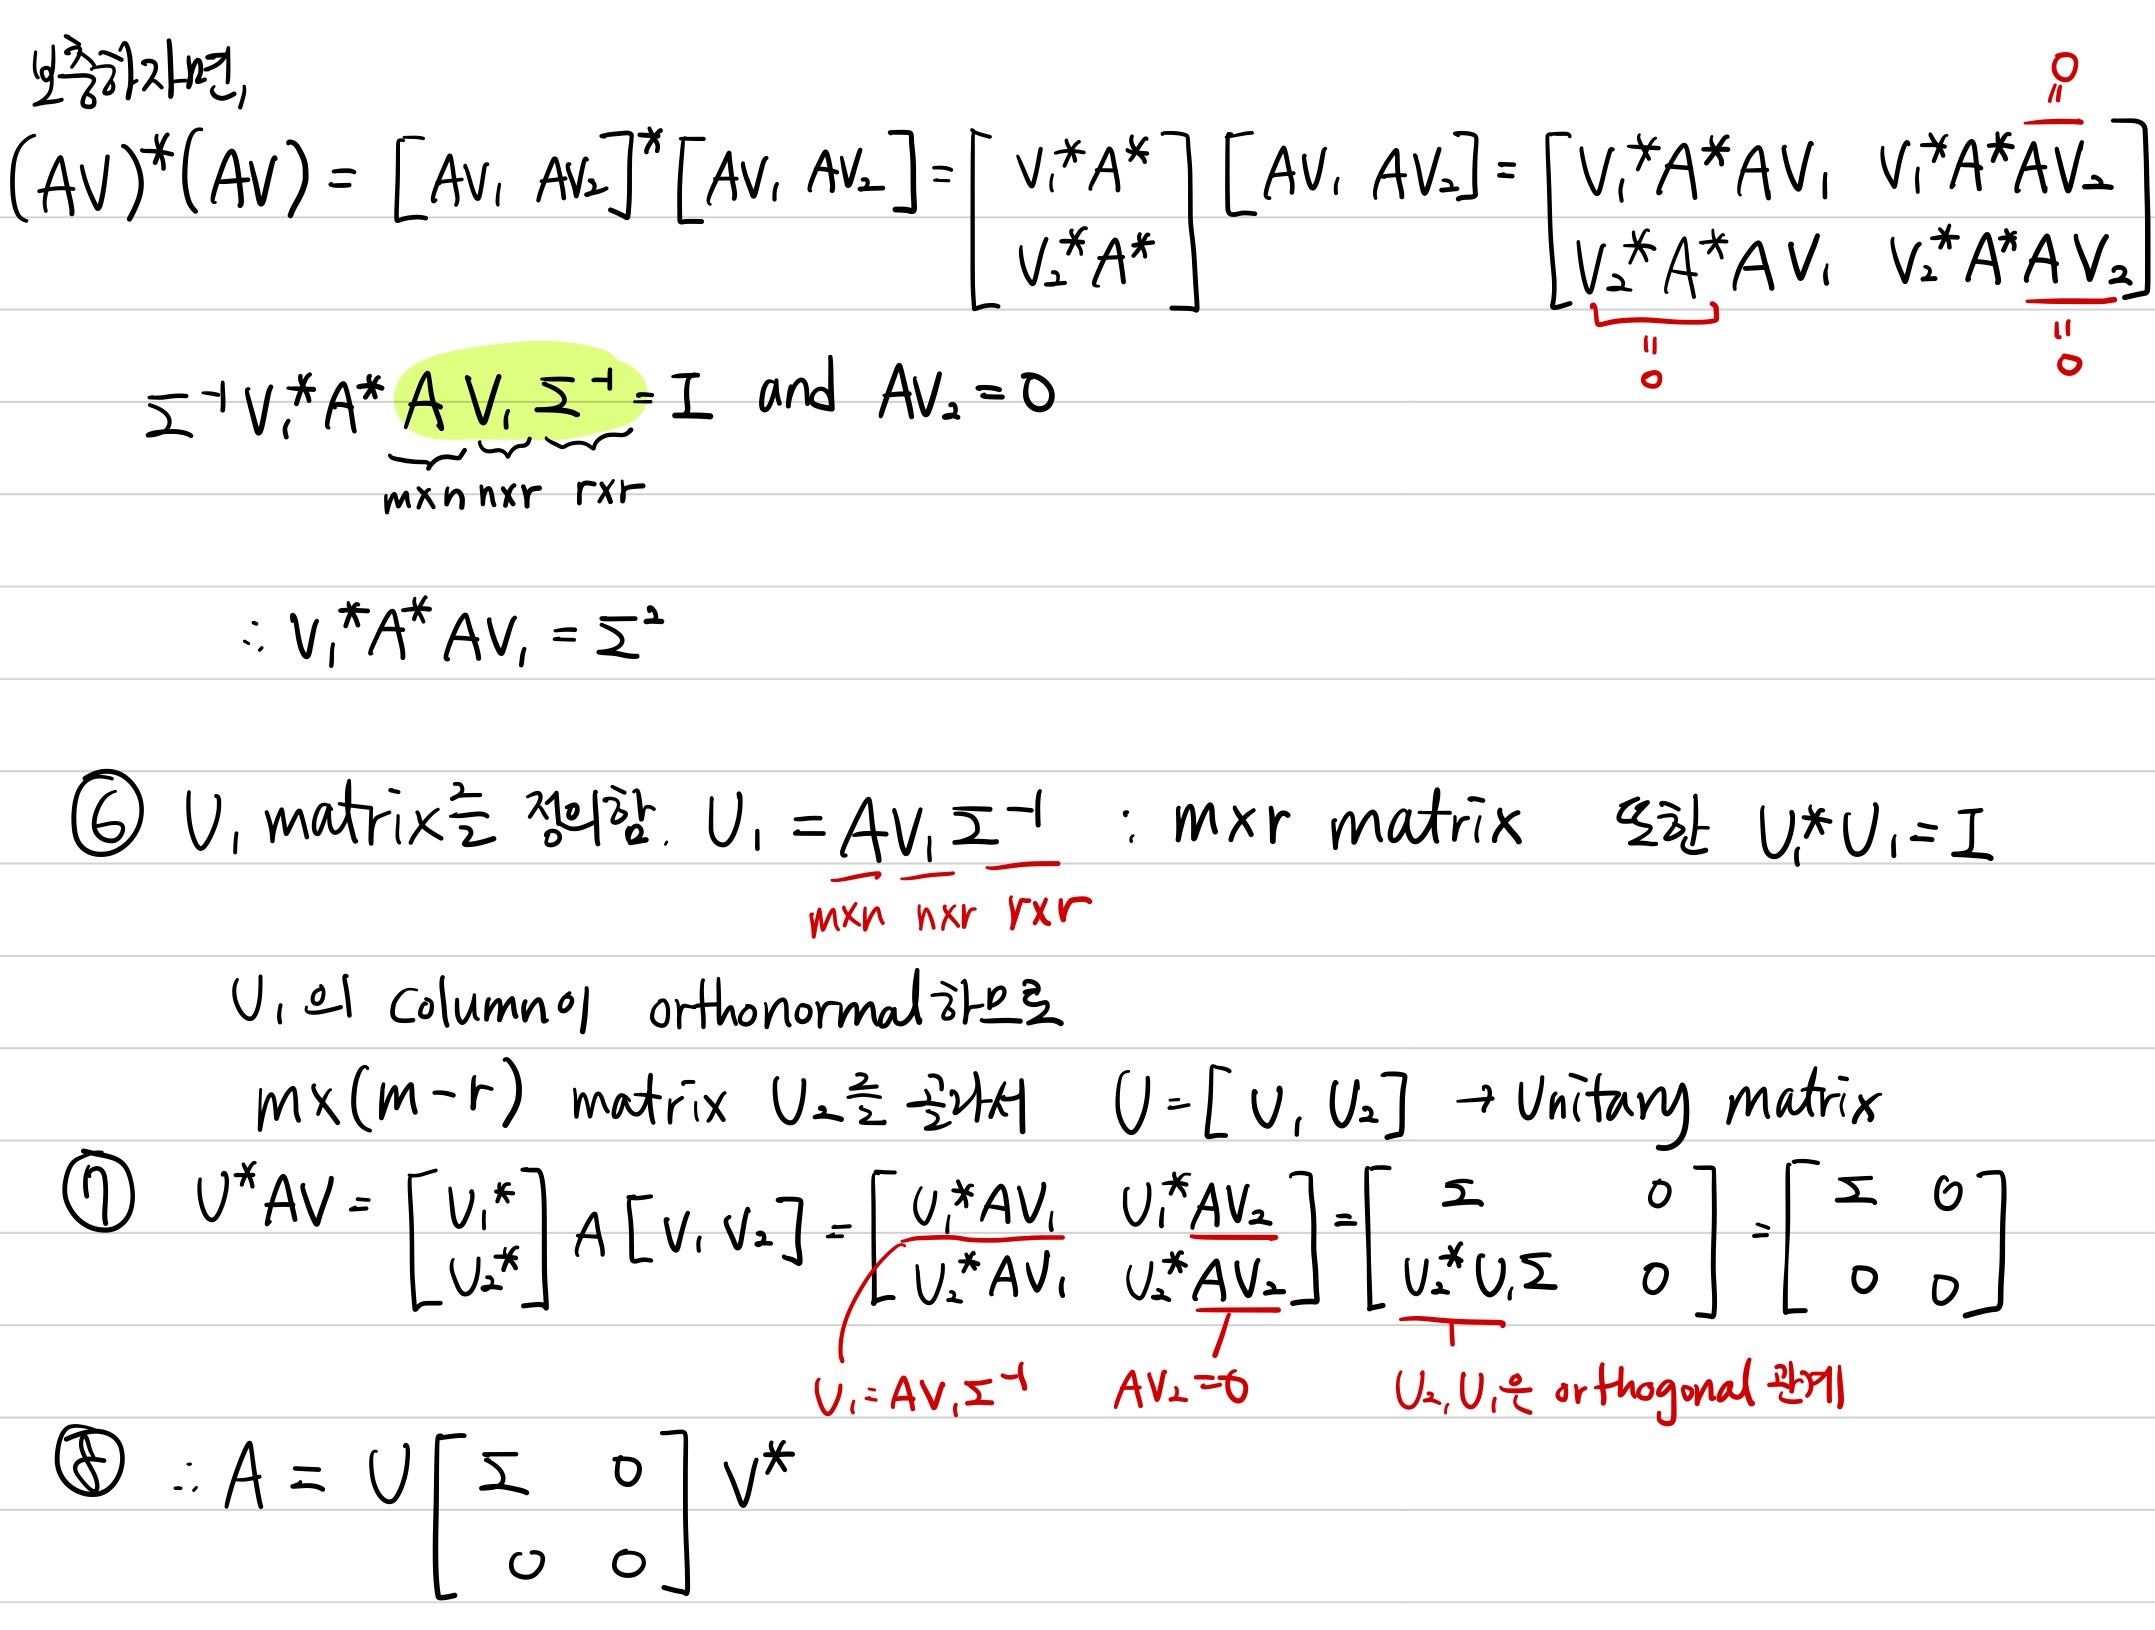 보충하자면,
(AV)*(AV) = [AV₁ AV₂]* [AV₁ AV₂] = [V₁*A* ; V₂*A*] [AV₁ AV₂] = [V₁*A*AV₁ V₁*A*AV₂ ; V₂*A*AV₁ V₂*A*AV₂]
= 0
= 0
= 0
Σ⁻¹V₁*A*AV₁Σ⁻¹ = I and AV₂ = 0
mxn nxr rxr
∴ V₁*A*AV₁ = Σ²
⑥ U₁ matrix를 정의함. U₁ = AV₁Σ⁻¹ : mxr matrix 또한 U₁*U₁ = I
mxn nxr rxr
U₁의 column이 orthonormal하므로
mx(m-r) matrix U₂를 추가해서 U = [U₁ U₂] → Unitary matrix
⑦ U*AV = [U₁* ; U₂*] A [V₁ V₂] = [U₁*AV₁ U₁*AV₂ ; U₂*AV₁ U₂*AV₂] = [Σ 0 ; U₂*U₁Σ 0] = [Σ 0 ; 0 0]
U₁ = AV₁Σ⁻¹ AV₂ = 0 U₂, U₁은 orthogonal 관계
⑧ ∴ A = U [Σ 0 ; 0 0] V*